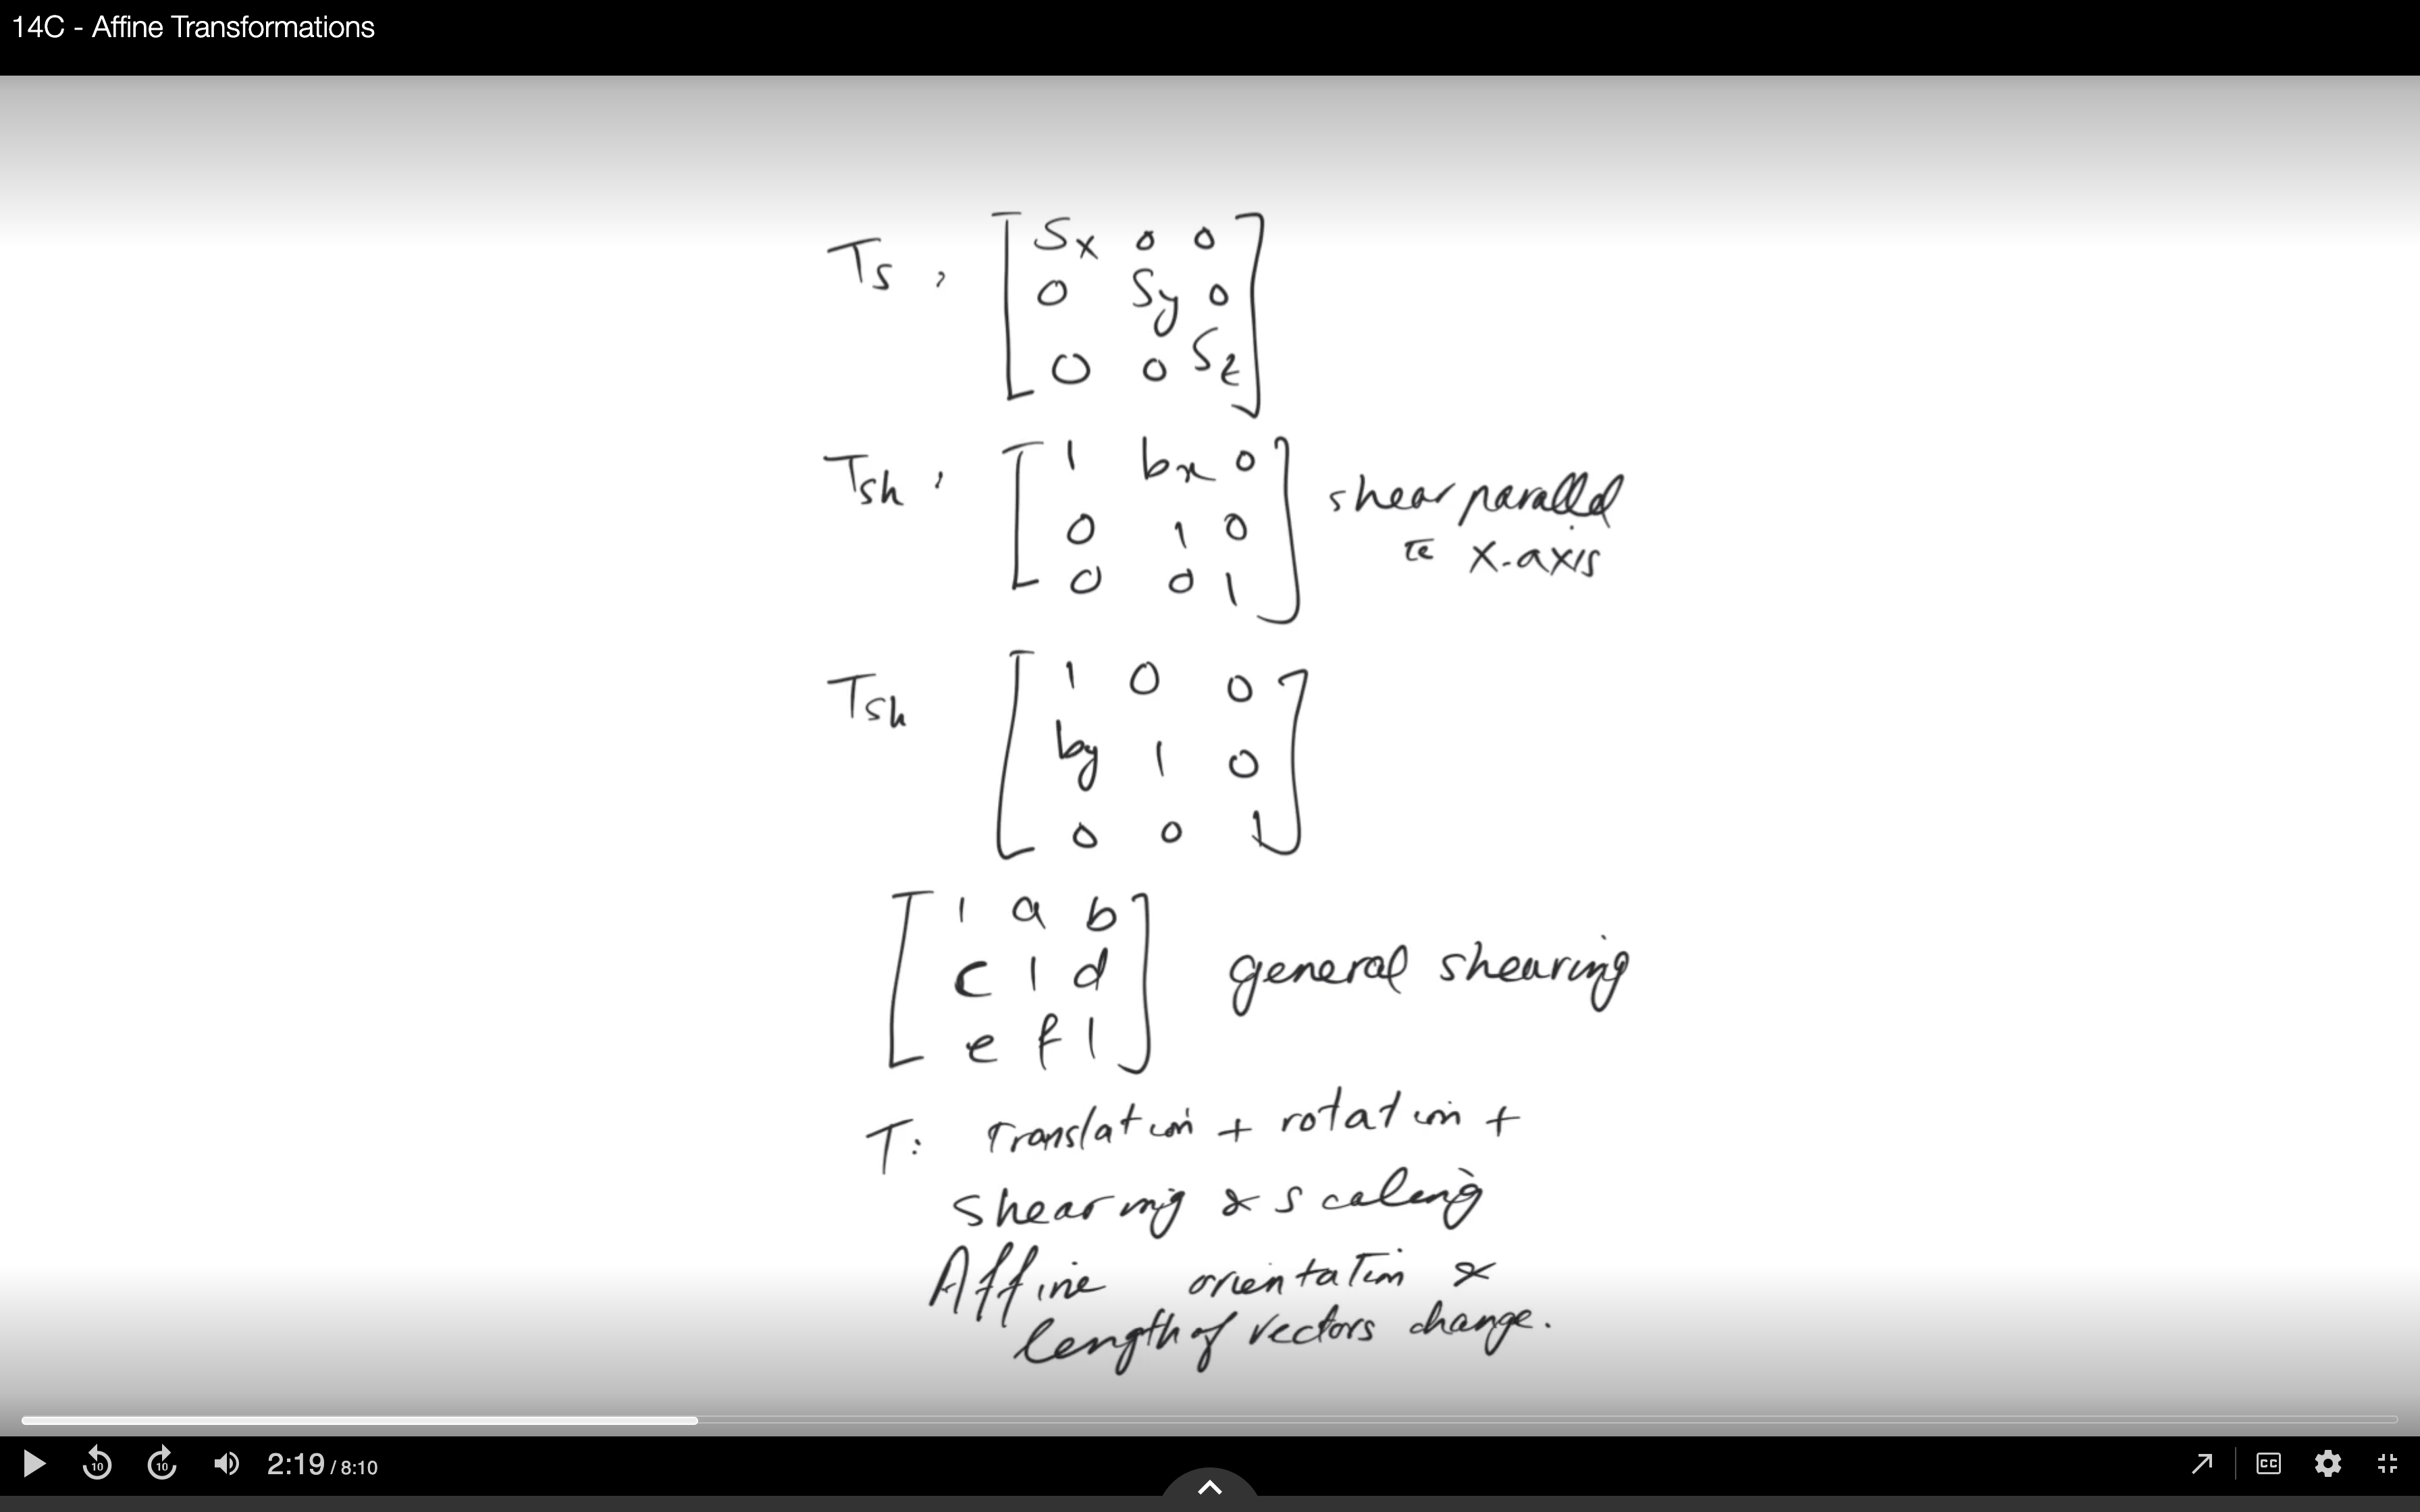 14C - Affine Transformations
Ts, [ Sx 0 0
0 Sy 0
0 0 Sz ]
Tsh, [ 1 bx 0
0 1 0
0 0 1 ] shear parallel
to x-axis
Tsh [ 1 0 0
by 1 0
0 0 1 ]
[ 1 a b
c 1 d
e f 1 ] general shearing
T: Translation + rotation +
shearing & scaling
Affine orientation &
length of vectors change.
10 10 2:19 / 8:10 CC